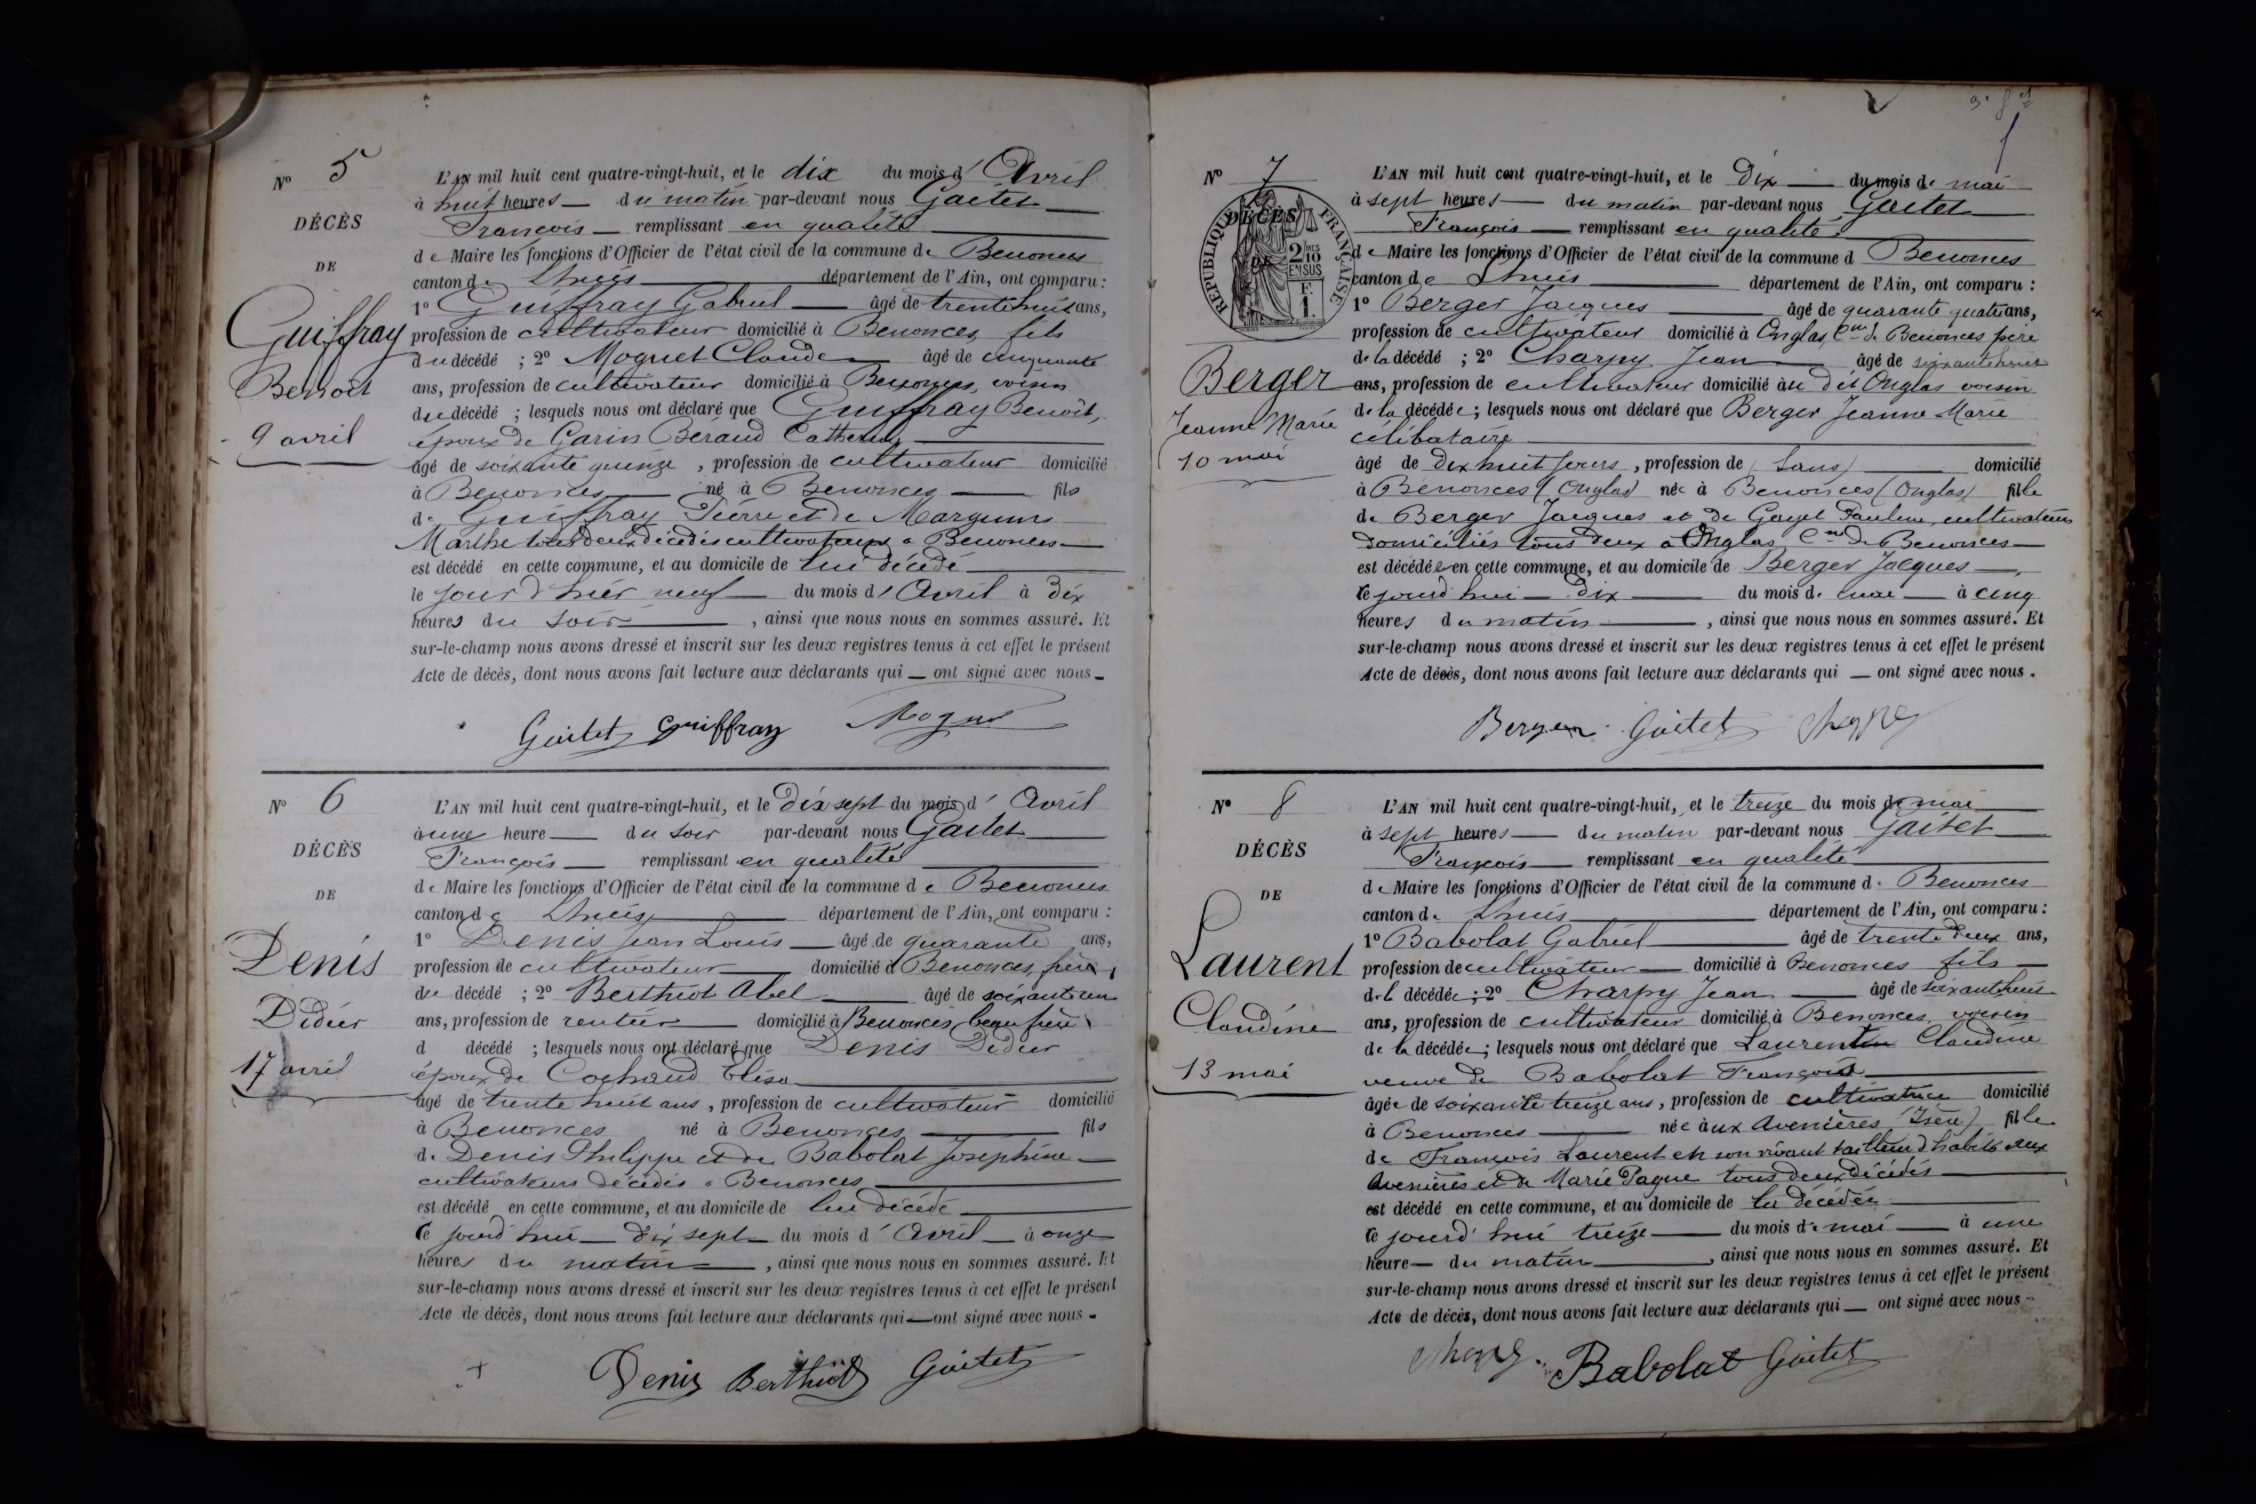 N° 5
DÉCÈS
DE
Guiffray
Benoit
9 avril
L'AN mil huit cent quatre-vingt-huit, et le dix du mois d'Avril
à huit heures du matin par-devant nous Gaitet
François remplissant en qualité
de Maire les fonctions d'Officier de l'état civil de la commune de Benonces
canton de Lhuis département de l'Ain, ont comparu :
1° Guiffray Gabriel âgé de trente huit ans,
profession de cultivateur domicilié à Benonces, fils
du décédé ; 2° Moguet Claude âgé de cinquante
ans, profession de cultivateur domicilié à Benonces, voisin
du décédé ; lesquels nous ont déclaré que Guiffray Benoit,
époux de Garin Béraud Catherine
âgé de soixante quinze, profession de cultivateur domicilié
à Benonces né à Benonces fils
de Guiffray Pierre et de
Marthe tous deux décédés cultivateurs à Benonces
est décédé en cette commune, et au domicile de lui décédé
le jour d'hier neuf du mois d'Avril à dix
heures du soir, ainsi que nous nous en sommes assuré. Et
sur-le-champ nous avons dressé et inscrit sur les deux registres tenus à cet effet le présent
Acte de décès, dont nous avons fait lecture aux déclarants qui ont signé avec nous
Gaitet Guiffray
N° 6
DÉCÈS
DE
Denis
Didier
17 avril
L'AN mil huit cent quatre-vingt-huit, et le Dix sept du mois d'Avril
à une heure du soir par-devant nous Gaitet
François remplissant en qualité
de Maire les fonctions d'Officier de l'état civil de la commune de Benonces
canton de Lhuis département de l'Ain, ont comparu :
1° Denis Jean Louis âgé de quarante ans,
profession de cultivateur domicilié à Benonces, frère
du décédé ; 2° Berthiot Abel âgé de soixante un
ans, profession de rentier domicilié à Benonces, beau frère
d décédé ; lesquels nous ont déclaré que Denis Didier
époux de Cochaud Elisa
âgé de trente huit ans, profession de cultivateur domicilié
à Benonces né à Benonces fils
de Denis Philippe et de Babolat Josephine
cultivateurs décédés à Benonces
est décédé en cette commune, et au domicile de lui décédé
ce jourd'hui dix sept du mois d'Avril à onze
heures du matin, ainsi que nous nous en sommes assuré. Et
sur-le-champ nous avons dressé et inscrit sur les deux registres tenus à cet effet le présent
Acte de décès, dont nous avons fait lecture aux déclarants qui ont signé avec nous
Denis Berthiot Gaitet
N° 7
DÉCÈS
DE
RÉPUBLIQUE FRANÇAISE
2/10 EN SUS
F. 1.
Berger
Jeanne Marie
10 mai
L'AN mil huit cent quatre-vingt-huit, et le Dix du mois de mai
à sept heures du matin par-devant nous Gaitet
François remplissant en qualité
de Maire les fonctions d'Officier de l'état civil de la commune d Benonces
canton de Lhuis département de l'Ain, ont comparu :
1° Berger Jacques âgé de quarante quatre ans,
profession de cultivateur domicilié à Onglas, Cne de Benonces père
de la décédé ; 2° Charpy Jean âgé de soixante huit
ans, profession de cultivateur domicilié au dit Onglas voisin
de la décédée ; lesquels nous ont déclaré que Berger Jeanne Marie
célibataire
âgé de Dix huit jours, profession de (sans) domicilié
à Benonces (Onglas) née à Benonces (Onglas) fille
de Berger Jacques et de Gayet Pauline, cultivateurs
domiciliés tous deux à Onglas Cne de Benonces
est décédée en cette commune, et au domicile de Berger Jacques
ce jourd'hui dix du mois de mai à cinq
heures du matin, ainsi que nous nous en sommes assuré. Et
sur-le-champ nous avons dressé et inscrit sur les deux registres tenus à cet effet le présent
Acte de décès, dont nous avons fait lecture aux déclarants qui ont signé avec nous.
Berger Gaitet
N° 8
DÉCÈS
DE
Laurent
Claudine
13 mai
L'AN mil huit cent quatre-vingt-huit, et le treize du mois de mai
à sept heures du matin par-devant nous Gaitet
François remplissant en qualité
de Maire les fonctions d'Officier de l'état civil de la commune d. Benonces
canton de Lhuis département de l'Ain, ont comparu :
1° Babolat Gabriel âgé de trente deux ans,
profession de cultivateur domicilié à Benonces fils
de l décédée ; 2° Charpy Jean âgé de soixante huit
ans, profession de cultivateur domicilié à Benonces, voisin
de la décédée ; lesquels nous ont déclaré que Laurent Claudine
veuve de Babolat François
âgée de soixante treize ans, profession de cultivatrice domicilié
à Benonces née aux Avenières (Isère) fille
de François Laurent en son vivant tailleur d'habits aux
Avenières et de Marie Pague tous deux décédés
est décédé en cette commune, et au domicile de la décédée
ce jourd'hui treize du mois de mai à une
heure du matin, ainsi que nous nous en sommes assuré. Et
sur-le-champ nous avons dressé et inscrit sur les deux registres tenus à cet effet le présent
Acte de décès, dont nous avons fait lecture aux déclarants qui ont signé avec nous
Babolat Gaitet